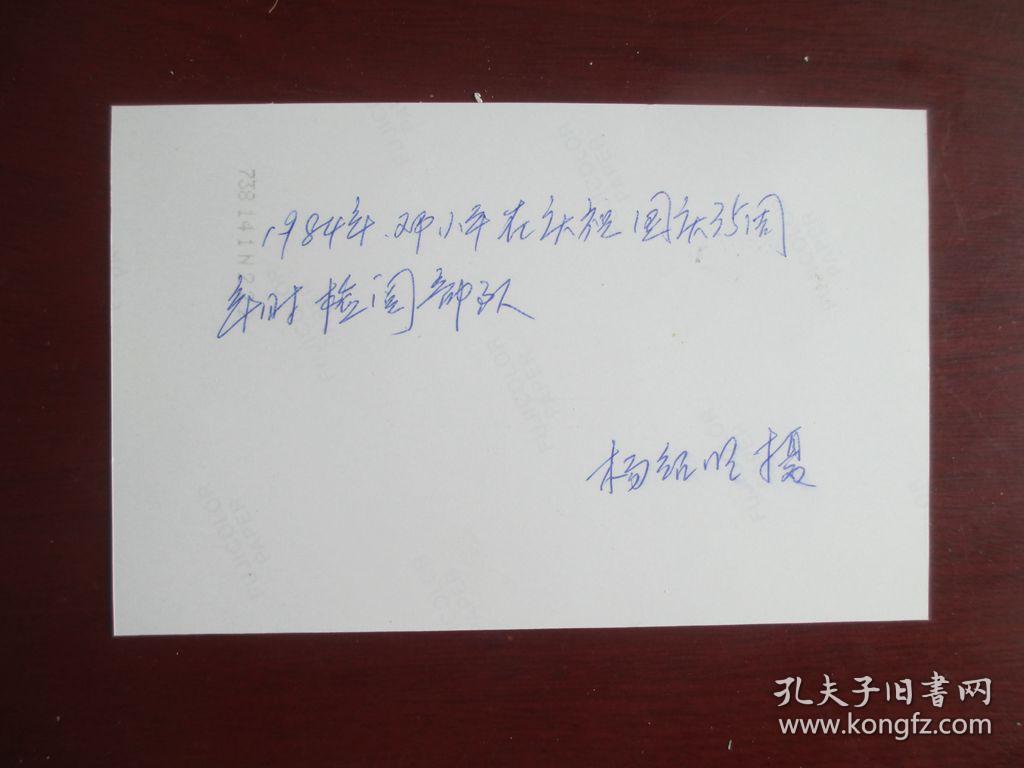 1984年.邓小平在庆祝国庆35周
年时检阅部队
杨绍明摄
738141N2
FUJICOLOR
PAPER
孔夫子旧书网
www.kongfz.com